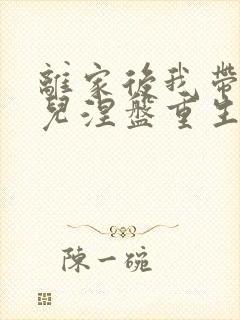 離家後我帶
兒涅盤重生
陳一碗